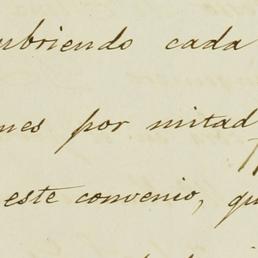 ubriendo cada
nes por mitad
este convenio, qu